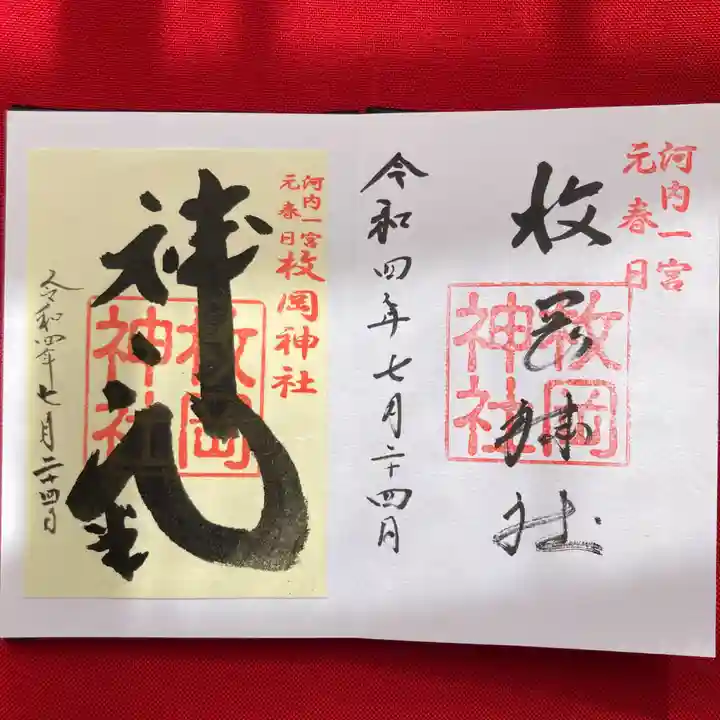 河内一宮
元春日
枚岡神社
枚岡
神社
令和四年七月二十四日
河内一宮
元春日
枚岡神社
枚岡
神社
神氣
令和四年七月二十四日